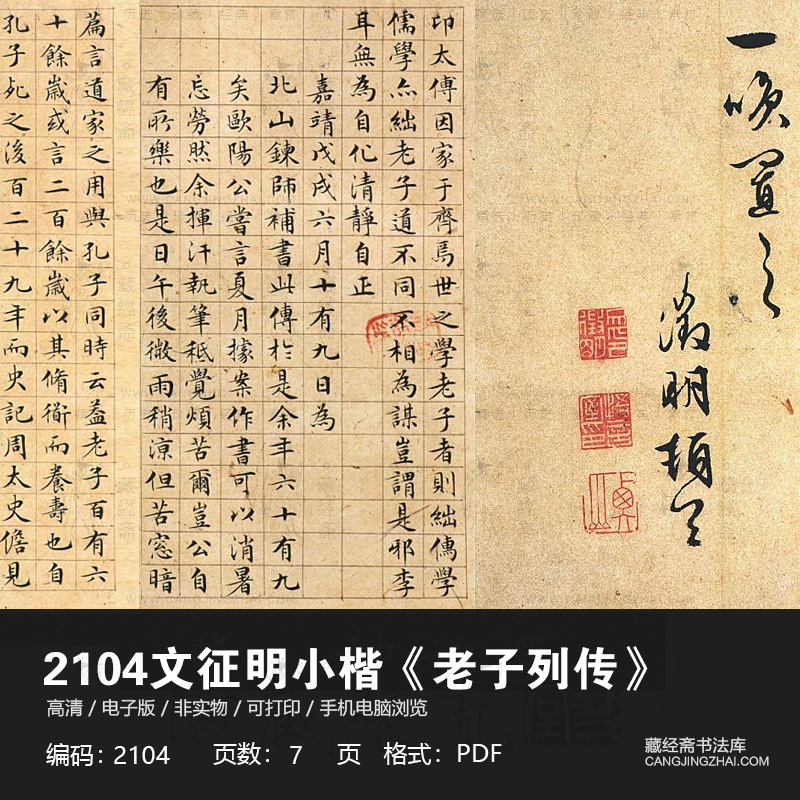 一咲置之
徵明頓首
印太傅因家于齊焉世之學老子者則絀儒學
儒學亦絀老子道不同不相為謀豈謂是邪李
耳無為自化清靜自正
嘉靖戊戌六月十有九日為
北山鍊師補書此傳於是余年六十有九
矣歐陽公嘗言夏月據案作書可以消暑
忘勞然余揮汗執筆秪覺煩苦爾豈公自
有所樂也是日午後微雨稍涼但苦窓暗
篇言道家之用與孔子同時云葢老子百有六
十餘歲或言二百餘歲以其脩衟而養壽也自
孔子死之後百二十九年而史記周太史儋見
2104文征明小楷《老子列传》
高清 / 电子版 / 非实物 / 可打印 / 手机电脑浏览
编码：2104 页数：7 页 格式：PDF
藏经斋书法库
CANGJINGZHAI.COM